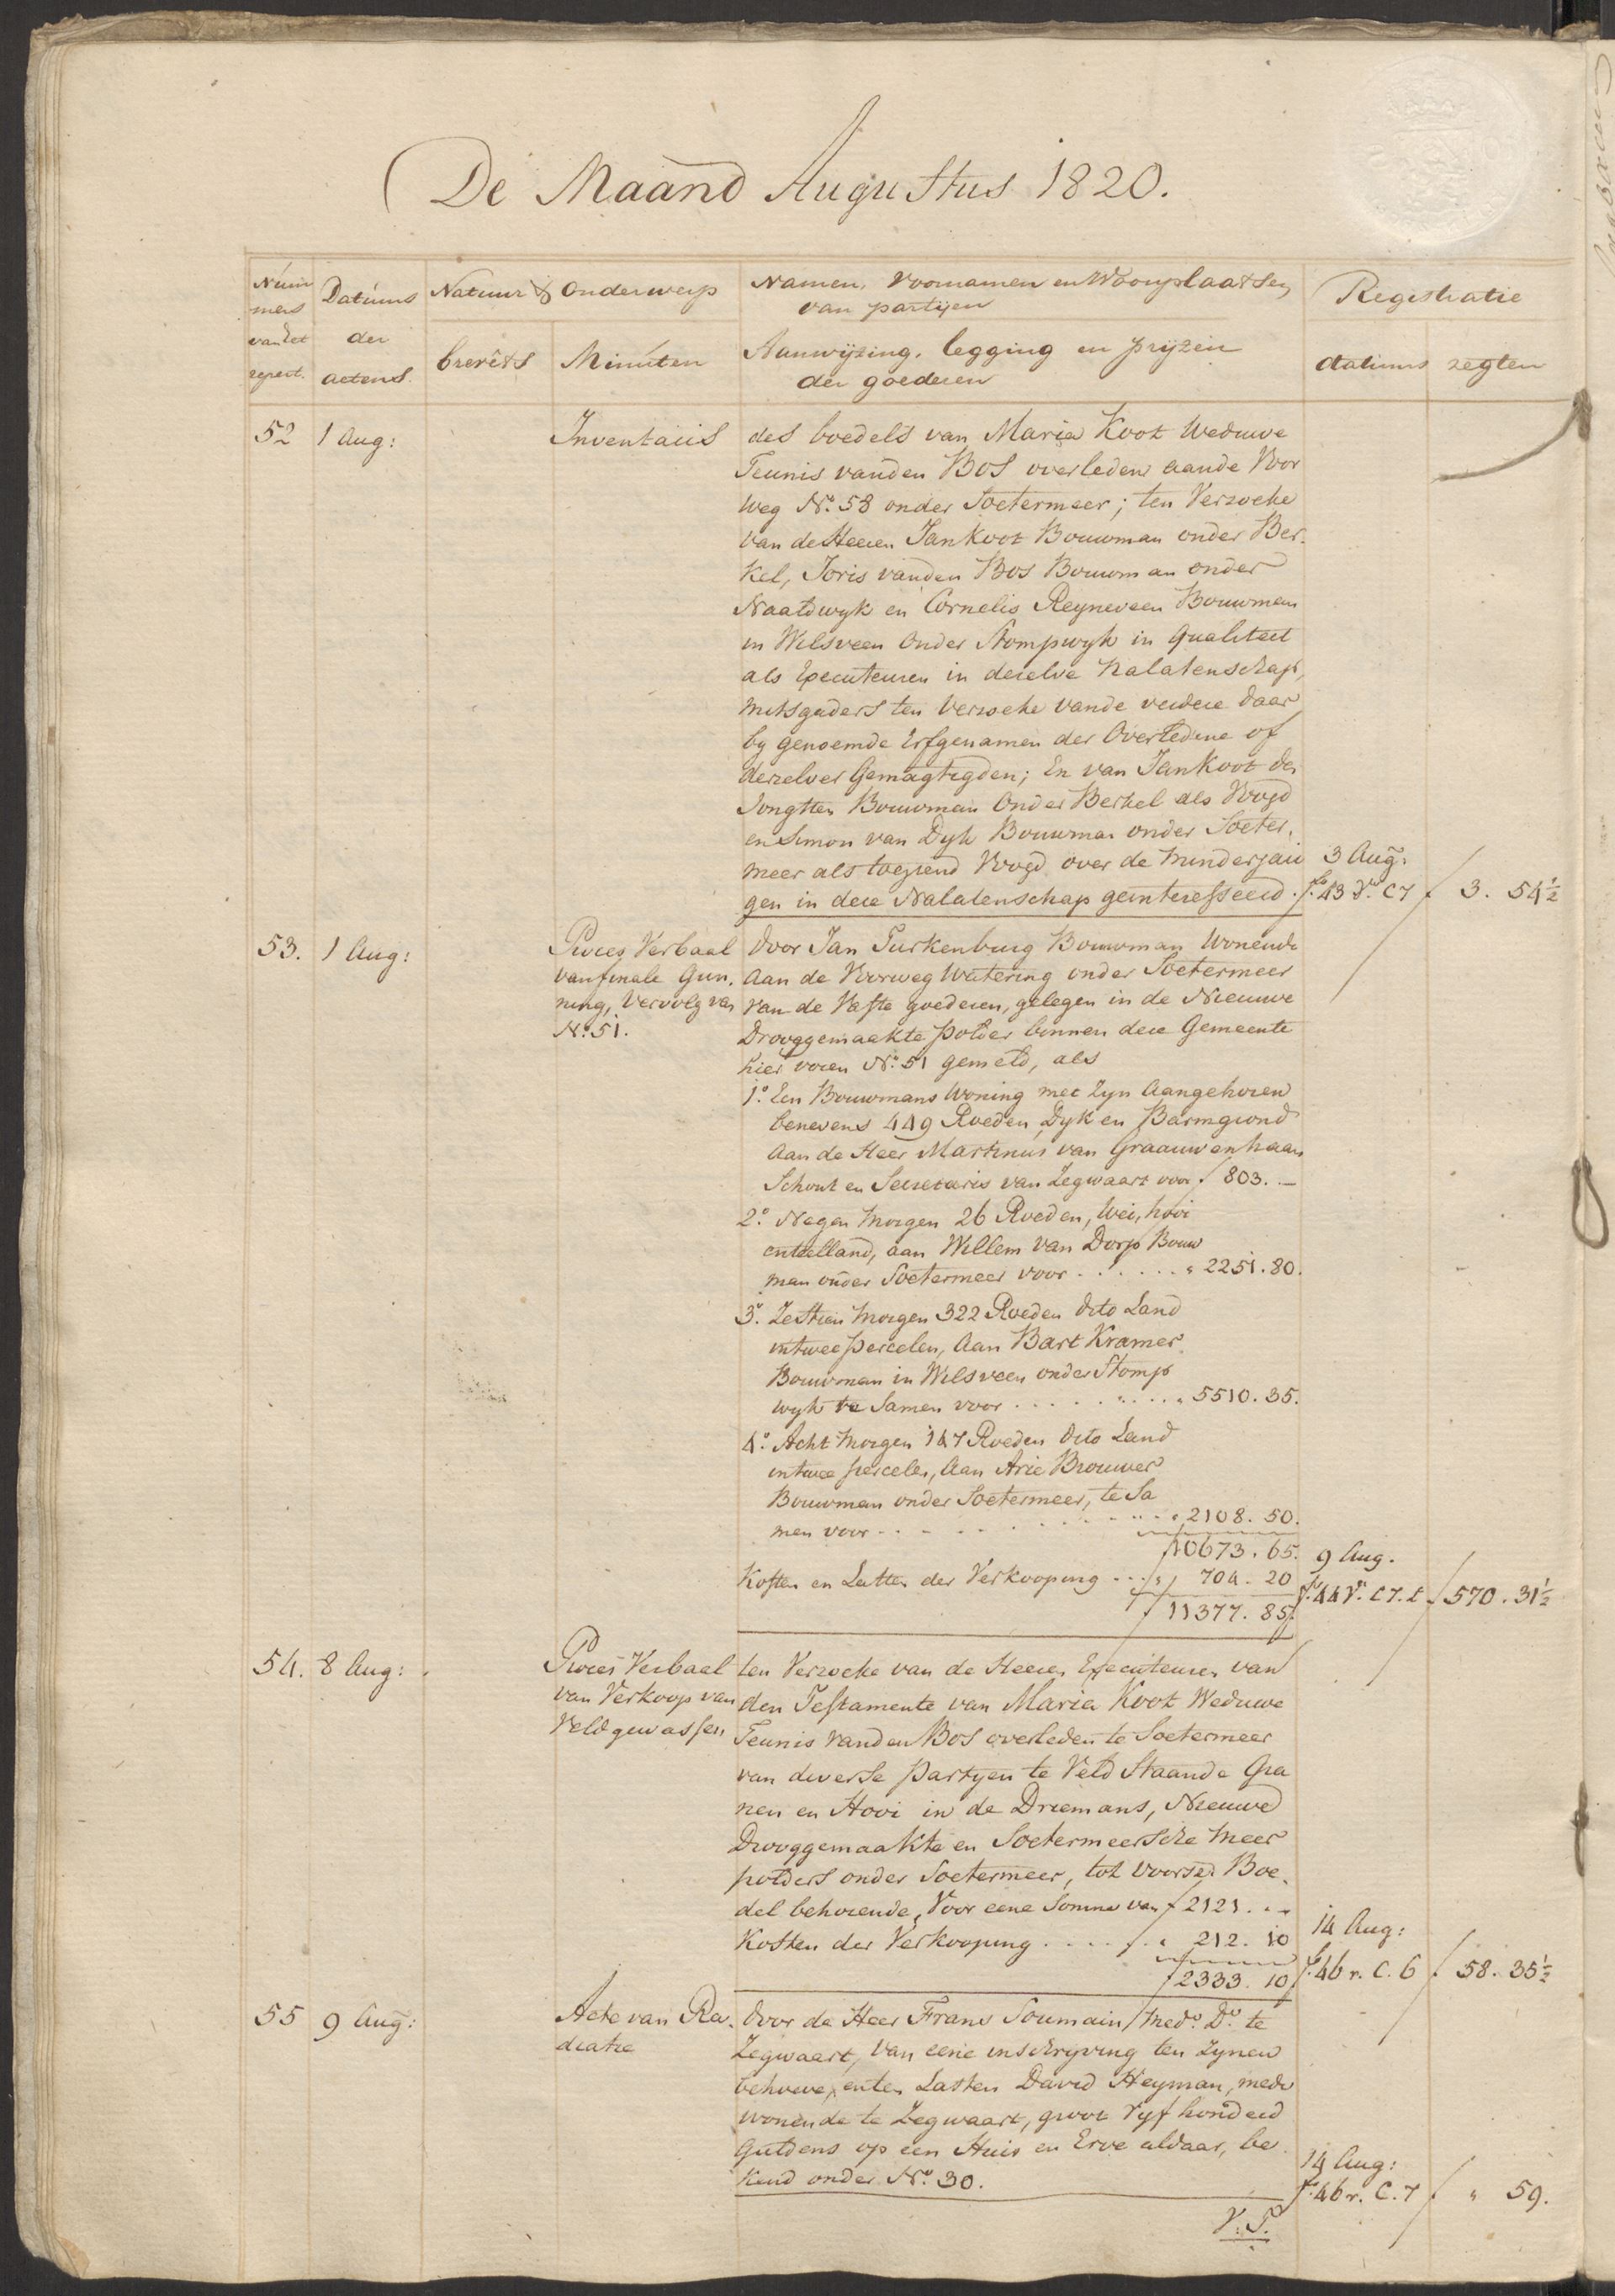 De Maand Augustus 1820.
Num
mers
van het
repert.
Datums
der
actens.
Natuur & Onderwerp
brevêts
Minúten
Namen, Voornamen en Woonplaatsen
van partijen
Aanwijzing, legging en prijzen
der goederen
Registratie
datums
regten
52
1 Aug:
Inventaris
des boedels van Maria Koot Weduwe
Teunis vanden Bos overleden aande Voor
weg No. 58 onder Soetermeer; ten Verzoeke
van de Heeren Jan Koot Bouwman onder Ber-
kel, Joris vanden Bos Bouwman onder
Naatdwyk en Cornelis Reyneveen Bouwman
in Wilsveen onder Stompwyk in qualiteit
als Executeuren in dezelve Nalatenschap,
mitsgaders ten Verzoeke vande verdere daar
by genoemde Erfgenamen der Overledene of
derzelver Gemagtigden; En van Jan Koot de
Jongsten Bouwman Onder Berkel als Voogd
en Simon van Dyk Bouwman onder Soeter-
meer als toeziend Voogd over de minderjari
gen in deze Nalatenschap geinteresseerd.
3 Aug:
fo. 43 Vo. C7
f 3. 54½
53.
1 Aug:
Proces Verbaal
van finale Gun-
ning, Vervolg van
No. 51.
door Jan Turkenburg Bouwman Wonende
aan de Voorweg Watering onder Soetermeer
van de Vaste goederen, gelegen in de Nieuwe
Drooggemaakte polder binnen deze Gemeente
hier voren No. 51 gemeld, als
1o. Een Bouwmans Woning met Zyn Aangehoren
benevens 449 Roeden, Dyk en Barmgrond
aan de Heer Martinus van Graauwenhaan
Schout en Secretaris van Zegwaart voor f 803. —
2o. Negen Morgen 26 Roeden, Wei, hooi
enteelland, aan Willem van Dorp Bouw
man onder Soetermeer voor . . . . . . „ 2251. 80.
3o. Zestien Morgen 322 Roeden dito Land
intwee percelen, Aan Bart Kramer
Bouwman in Wilsveen onder Stomp
wyk te Samen voor . . . . . . . . „ 5510. 35.
4o. Acht Morgen 147 Roeden dito Land
intwee percelen, Aan Arie Brouwer
Bouwman onder Soetermeer, te Sa
men voor . . . . . . . . . . „ 2108. 50.
f 10673. 65.
Kosten en Lasten der Verkooping . . . „ 704. 20
f 11377. 85.
9 Aug.
fo. 44 Vo. C7. t
f 570. 31½
54.
8 Aug:
Proces Verbaal
van Verkoop van
Veldgewassen
ten Verzoeke van de Heeren Executeuren van
den Testamente van Maria Koot Weduwe
Teunis vanden Bos overleden te Soetermeer
van diverse Partyen te Veld Staande Gra
nen en Hooi in de Driemans, Nieuwe
Drooggemaakte en Soetermeersche Meer
polders onder Soetermeer, tot voorsz. Boe-
del behorende, Voor eene Somma van f 2121. . –
Kosten der Verkooping . . . . . . „ 212. 10
f 2333. 10
14 Aug:
fo. 46 r. C. 6
f 58. 35½
55
9 Aug:
Acte van Ra-
diatie
door de Heer Frans Soumain Med. Dr. te
Zegwaart, van eene inschryving ten Zynen
behoeve, enten Lasten David Heyman, mede
wonende te Zegwaart, groot Vyf honderd
Guldens op een Huis en Erve aldaar, be-
kend onder No. 30.
14 Aug:
fo. 46 r. C. 7
f „ 59.
V. T.